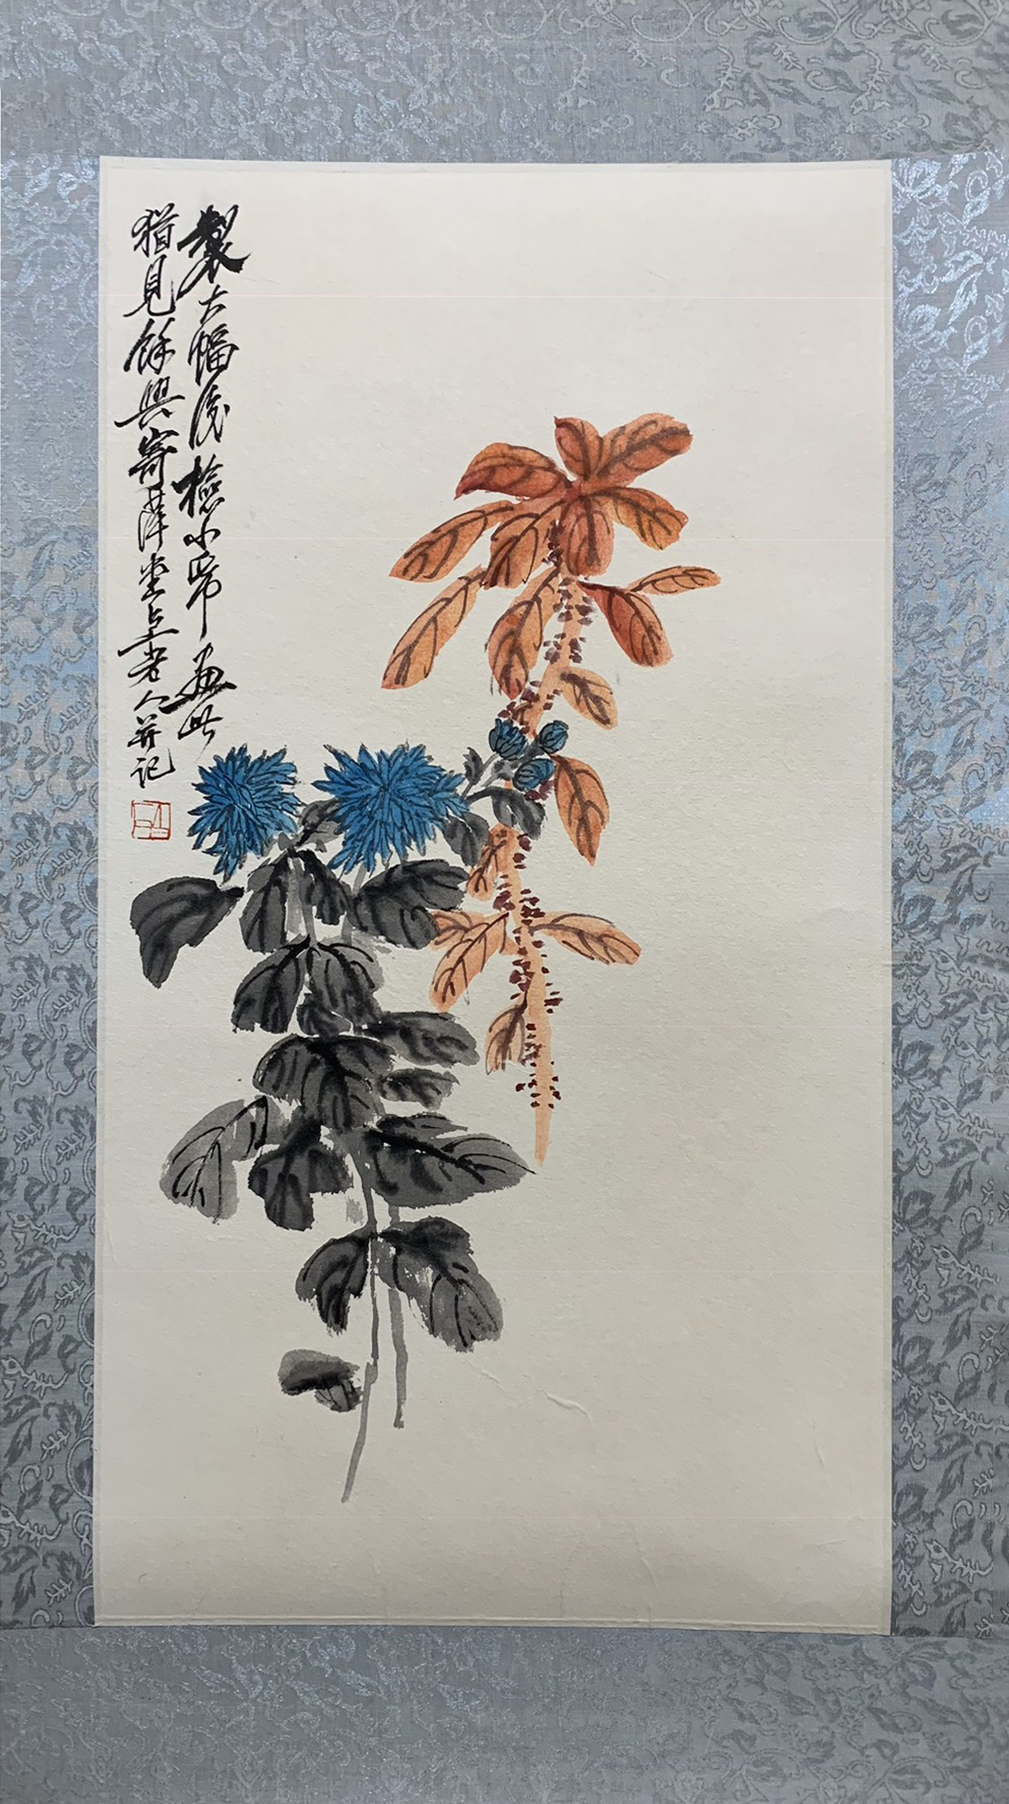 製大幅後檢小帋画此
猶見餘興寄萍堂上老人并記